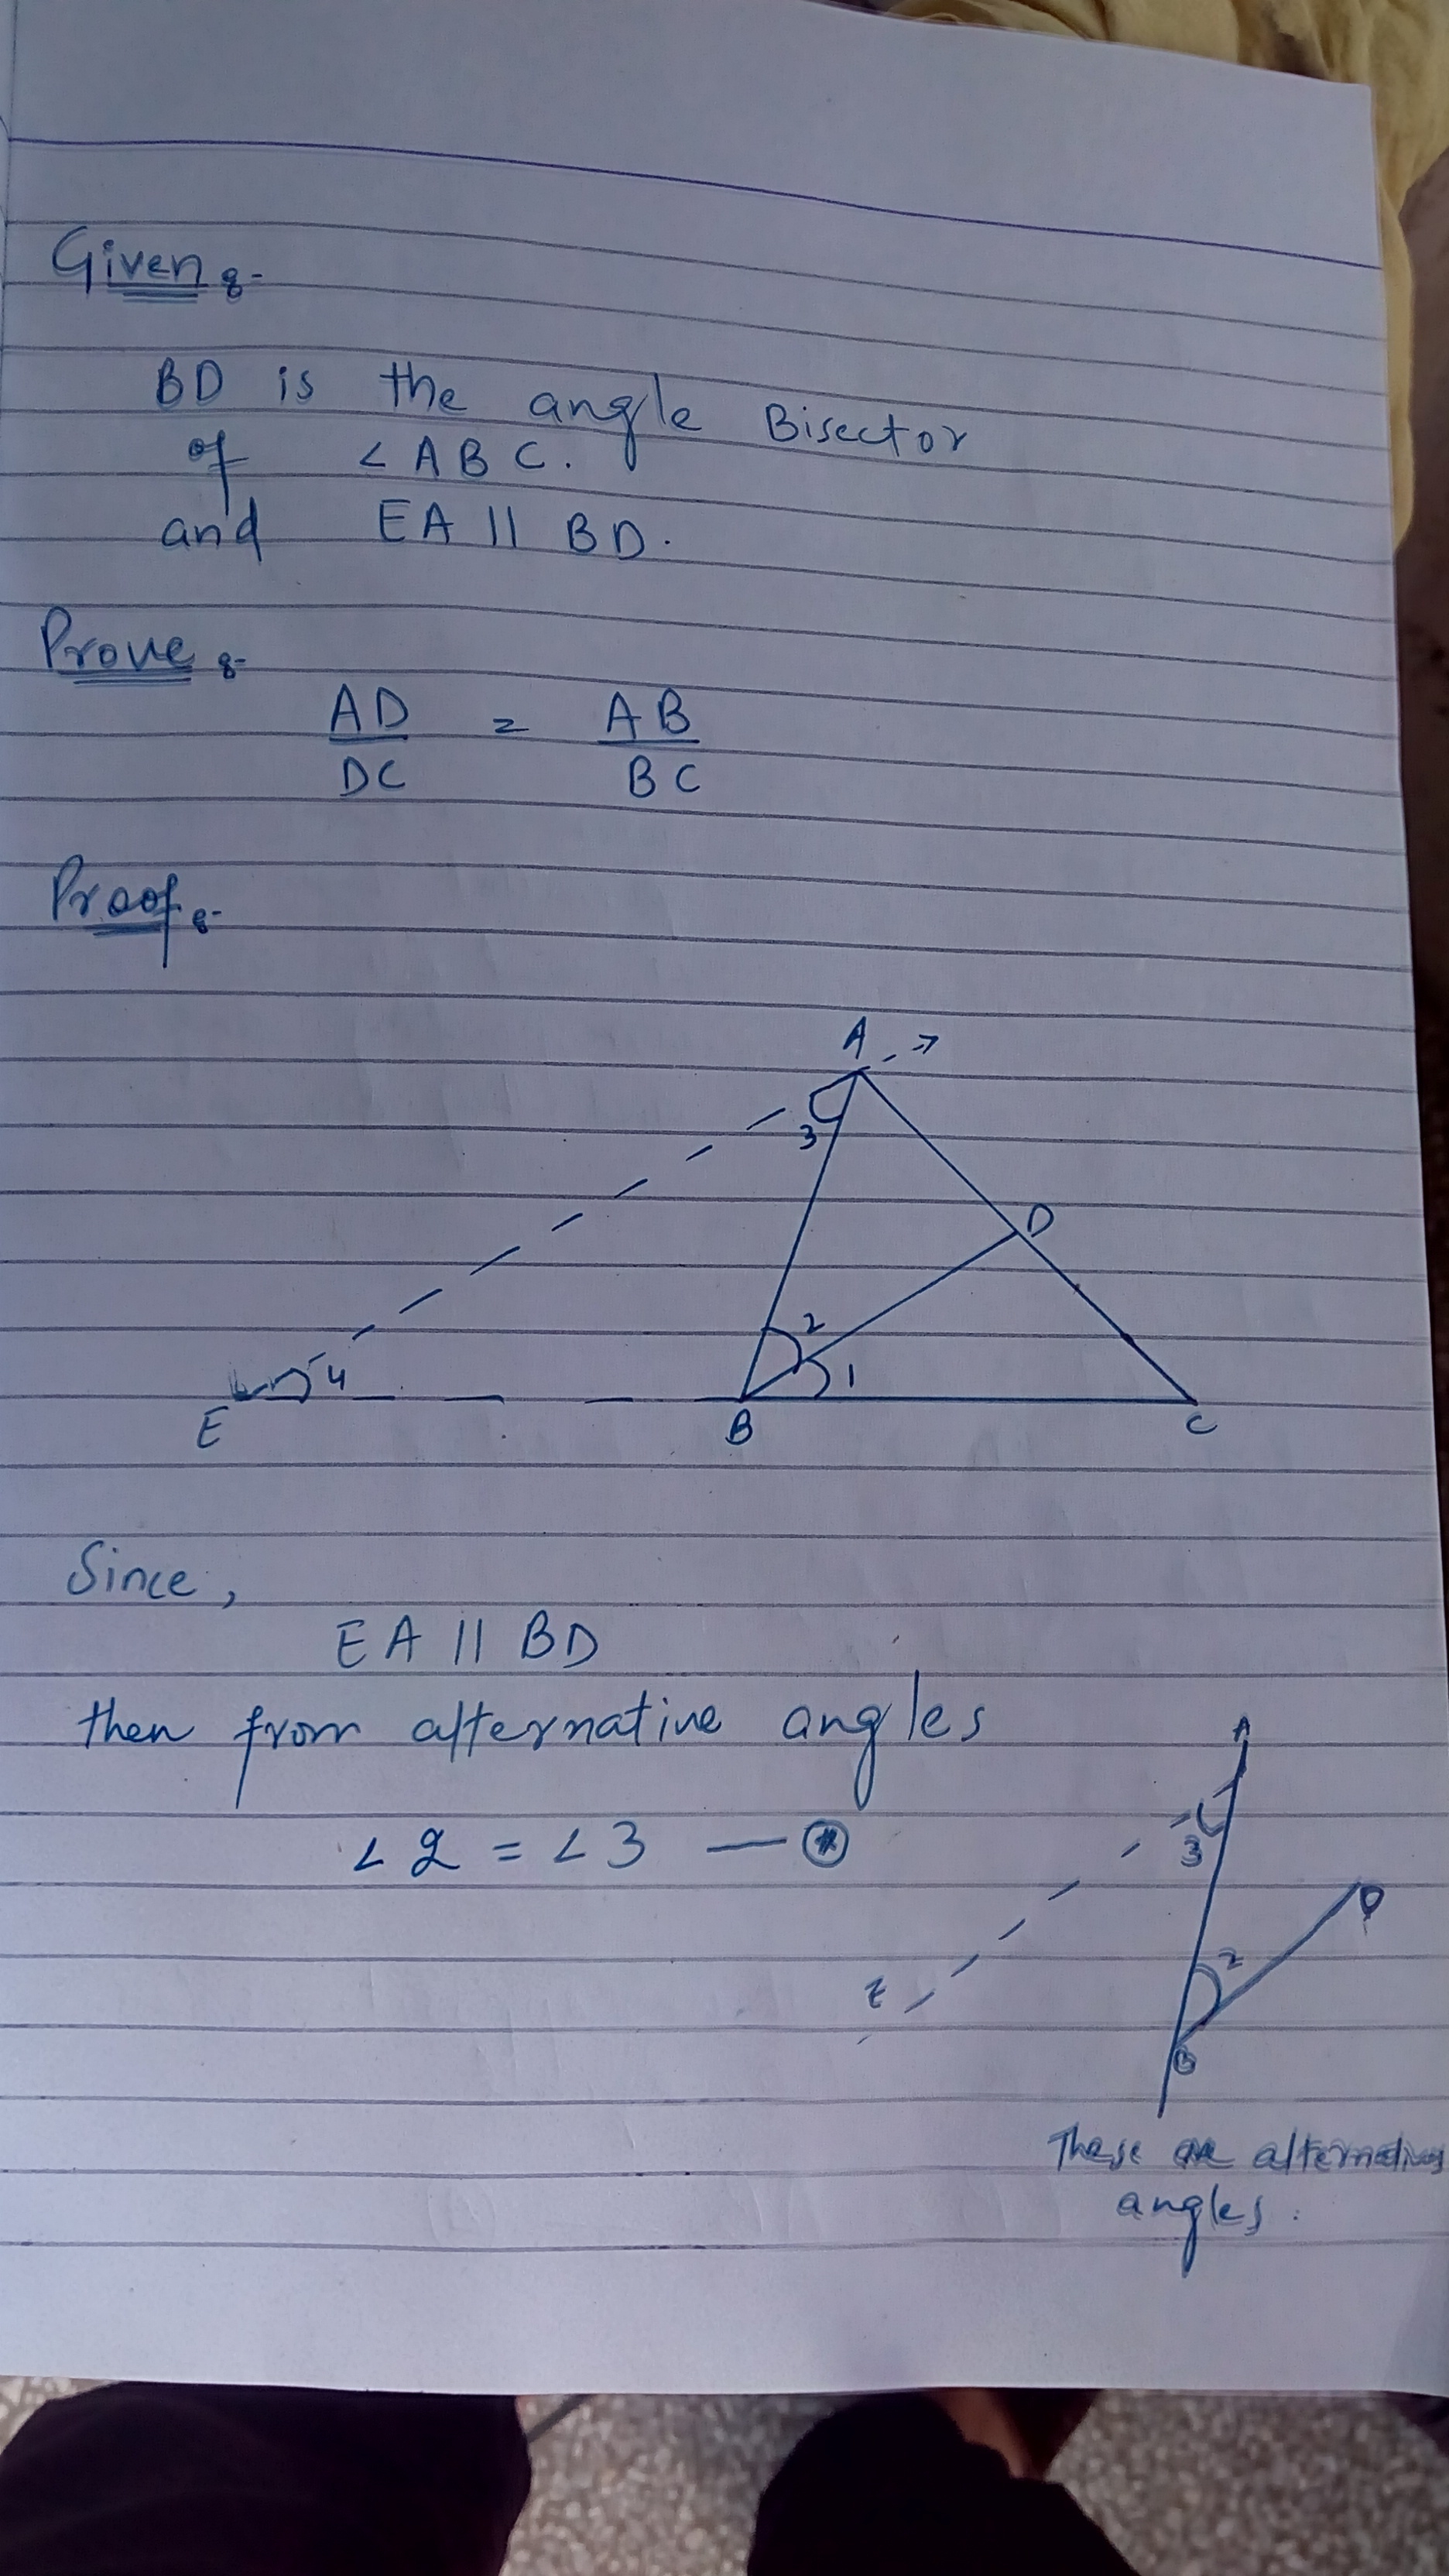 Given :-
BD is the angle Bisector
of ∠ABC.
and EA || BD.
Prove :-
AD = AB
DC BC
Proof :-
A
3
D
2
4
1
E
B
C
Since,
EA || BD
then from alternative angles
∠2 = ∠3 — ⊛
A
3
D
2
E
B
These are alternatives
angles.